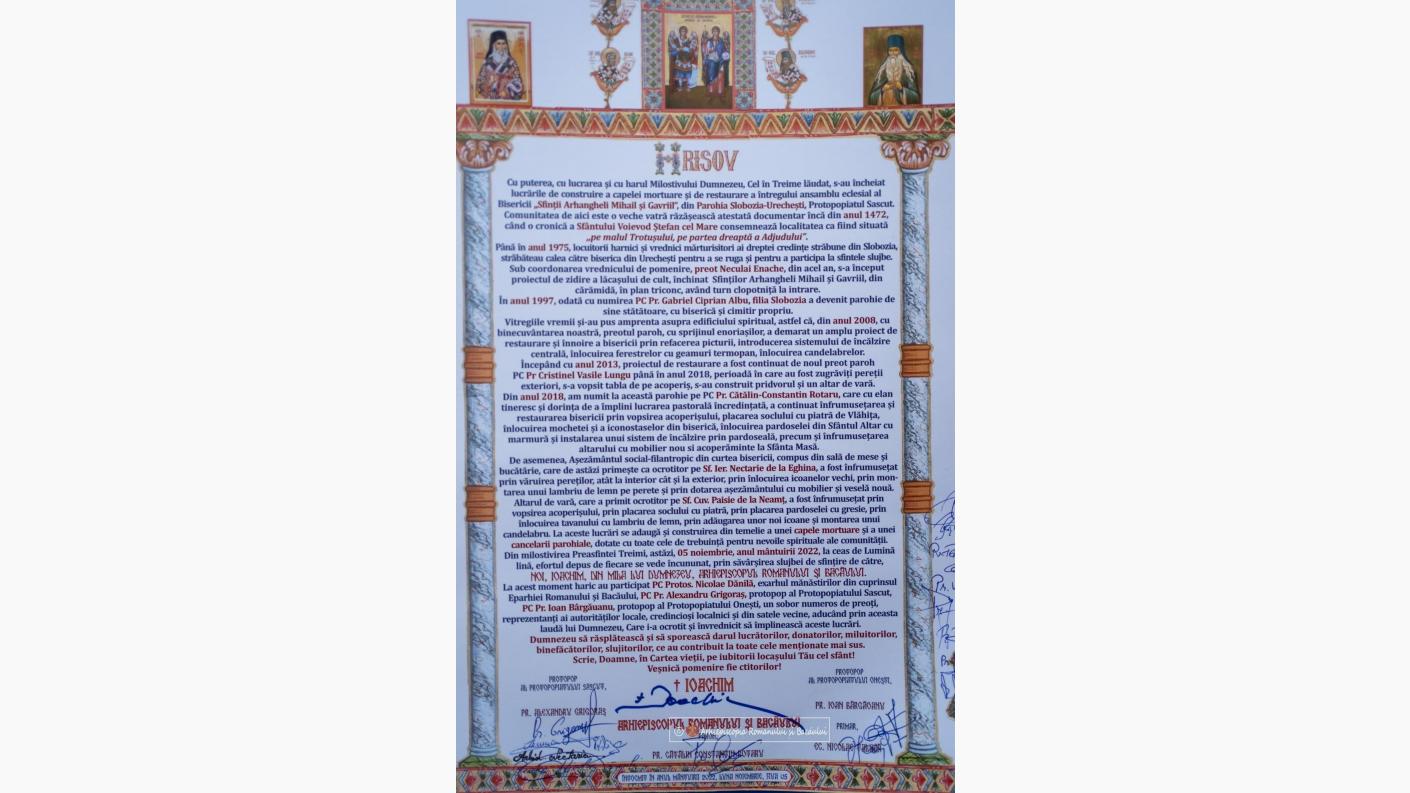 HRISOV
Cu puterea, cu lucrarea și cu harul Milostivului Dumnezeu, Cel în Treime lăudat, s-au încheiat
lucrările de construire a capelei mortuare și de restaurare a întregului ansamblu eclesial al
Bisericii „Sfinții Arhangheli Mihail și Gavriil”, din Parohia Slobozia-Urechești, Protopopiatul Sascut.
Comunitatea de aici este o veche vatră răzășească atestată documentar încă din anul 1472,
când o cronică a Sfântului Voievod Ștefan cel Mare consemnează localitatea ca fiind situată
„pe malul Trotușului, pe partea dreaptă a Adjudului”.
Până în anul 1975, locuitorii harnici și vrednici mărturisitori ai dreptei credințe străbune din Slobozia,
străbăteau calea către biserica din Urechești pentru a se ruga și pentru a participa la sfintele slujbe.
Sub coordonarea vrednicului de pomenire, preot Neculai Enache, din acel an, s-a început
proiectul de zidire a lăcașului de cult, închinat Sfinților Arhangheli Mihail și Gavriil, din
cărămidă, în plan triconc, având turn clopotniță la intrare.
În anul 1997, odată cu numirea PC Pr. Gabriel Ciprian Albu, filia Slobozia a devenit parohie de
sine stătătoare, cu biserică și cimitir propriu.
Vitregiile vremii și-au pus amprenta asupra edificiului spiritual, astfel că, din anul 2008, cu
binecuvântarea noastră, preotul paroh, cu sprijinul enoriașilor, a demarat un amplu proiect de
restaurare și înnoire a bisericii prin refacerea picturii, introducerea sistemului de încălzire
centrală, înlocuirea ferestrelor cu geamuri termopan, înlocuirea candelabrelor.
Începând cu anul 2013, proiectul de restaurare a fost continuat de noul preot paroh
PC Pr Cristinel Vasile Lungu până în anul 2018, perioadă în care au fost zugrăviți pereții
exteriori, s-a vopsit tabla de pe acoperiș, s-au construit pridvorul și un altar de vară.
Din anul 2018, am numit la această parohie pe PC Pr. Cătălin-Constantin Rotaru, care cu elan
tineresc și dorința de a împlini lucrarea pastorală încredințată, a continuat înfrumusețarea și
restaurarea bisericii prin vopsirea acoperișului, placarea soclului cu piatră de Vlăhița,
înlocuirea mochetei și a iconostaselor din biserică, înlocuirea pardoselei din Sfântul Altar cu
marmură și instalarea unui sistem de încălzire prin pardoseală, precum și înfrumusețarea
altarului cu mobilier nou si acoperăminte la Sfânta Masă.
De asemenea, Așezământul social-filantropic din curtea bisericii, compus din sală de mese și
bucătărie, care de astăzi primește ca ocrotitor pe Sf. Ier. Nectarie de la Eghina, a fost înfrumusețat
prin văruirea pereților, atât la interior cât și la exterior, prin înlocuirea icoanelor vechi, prin mon-
tarea unui lambriu de lemn pe perete și prin dotarea așezământului cu mobilier și veselă nouă.
Altarul de vară, care a primit ocrotitor pe Sf. Cuv. Paisie de la Neamț, a fost înfrumusețat prin
vopsirea acoperișului, prin placarea soclului cu piatră, prin placarea pardoselei cu gresie, prin
înlocuirea tavanului cu lambriu de lemn, prin adăugarea unor noi icoane și montarea unui
candelabru. La aceste lucrări se adaugă și construirea din temelie a unei capele mortuare și a unei
cancelarii parohiale, dotate cu toate cele de trebuință pentru nevoile spirituale ale comunității.
Din milostivirea Preasfintei Treimi, astăzi, 05 noiembrie, anul mântuirii 2022, la ceas de Lumină
lină, efortul depus de fiecare se vede încununat, prin săvârșirea slujbei de sfințire de către,
NOI, IOACHIM, DIN MILA LUI DUMNEZEU, ARHIEPISCOPUL ROMANULUI ȘI BACĂULUI.
La acest moment haric au participat PC Protos. Nicolae Dănilă, exarhul mănăstirilor din cuprinsul
Eparhiei Romanului și Bacăului, PC Pr. Alexandru Grigoraș, protopop al Protopopiatului Sascut,
PC Pr. Ioan Bârgăuanu, protopop al Protopopiatului Onești, un sobor numeros de preoți,
reprezentanți ai autorităților locale, credincioși localnici și din satele vecine, aducând prin aceasta
laudă lui Dumnezeu, Care i-a ocrotit și învrednicit să împlinească aceste lucrări.
Dumnezeu să răsplătească și să sporească darul lucrătorilor, donatorilor, miluitorilor,
binefăcătorilor, slujitorilor, ce au contribuit la toate cele menționate mai sus.
Scrie, Doamne, în Cartea vieții, pe iubitorii locașului Tău cel sfânt!
Veșnică pomenire fie ctitorilor!
PROTOPOP
AL PROTOPOPIATULUI SASCUT,
PR. ALEXANDRU GRIGORAȘ
† IOACHIM
ARHIEPISCOPUL ROMANULUI ȘI BACĂULUI
PROTOPOP
AL PROTOPOPIATULUI ONEȘTI,
PR. IOAN BÂRGĂOANU
PRIMAR,
EC. NICOLAE
PR. CĂTĂLIN CONSTANTIN ROTARU
Arhiepiscopia Romanului și Bacăului
ÎNTOCMIT ÎN ANUL MÂNTUIRII 2022, LUNA NOIEMBRIE, ZIUA 05